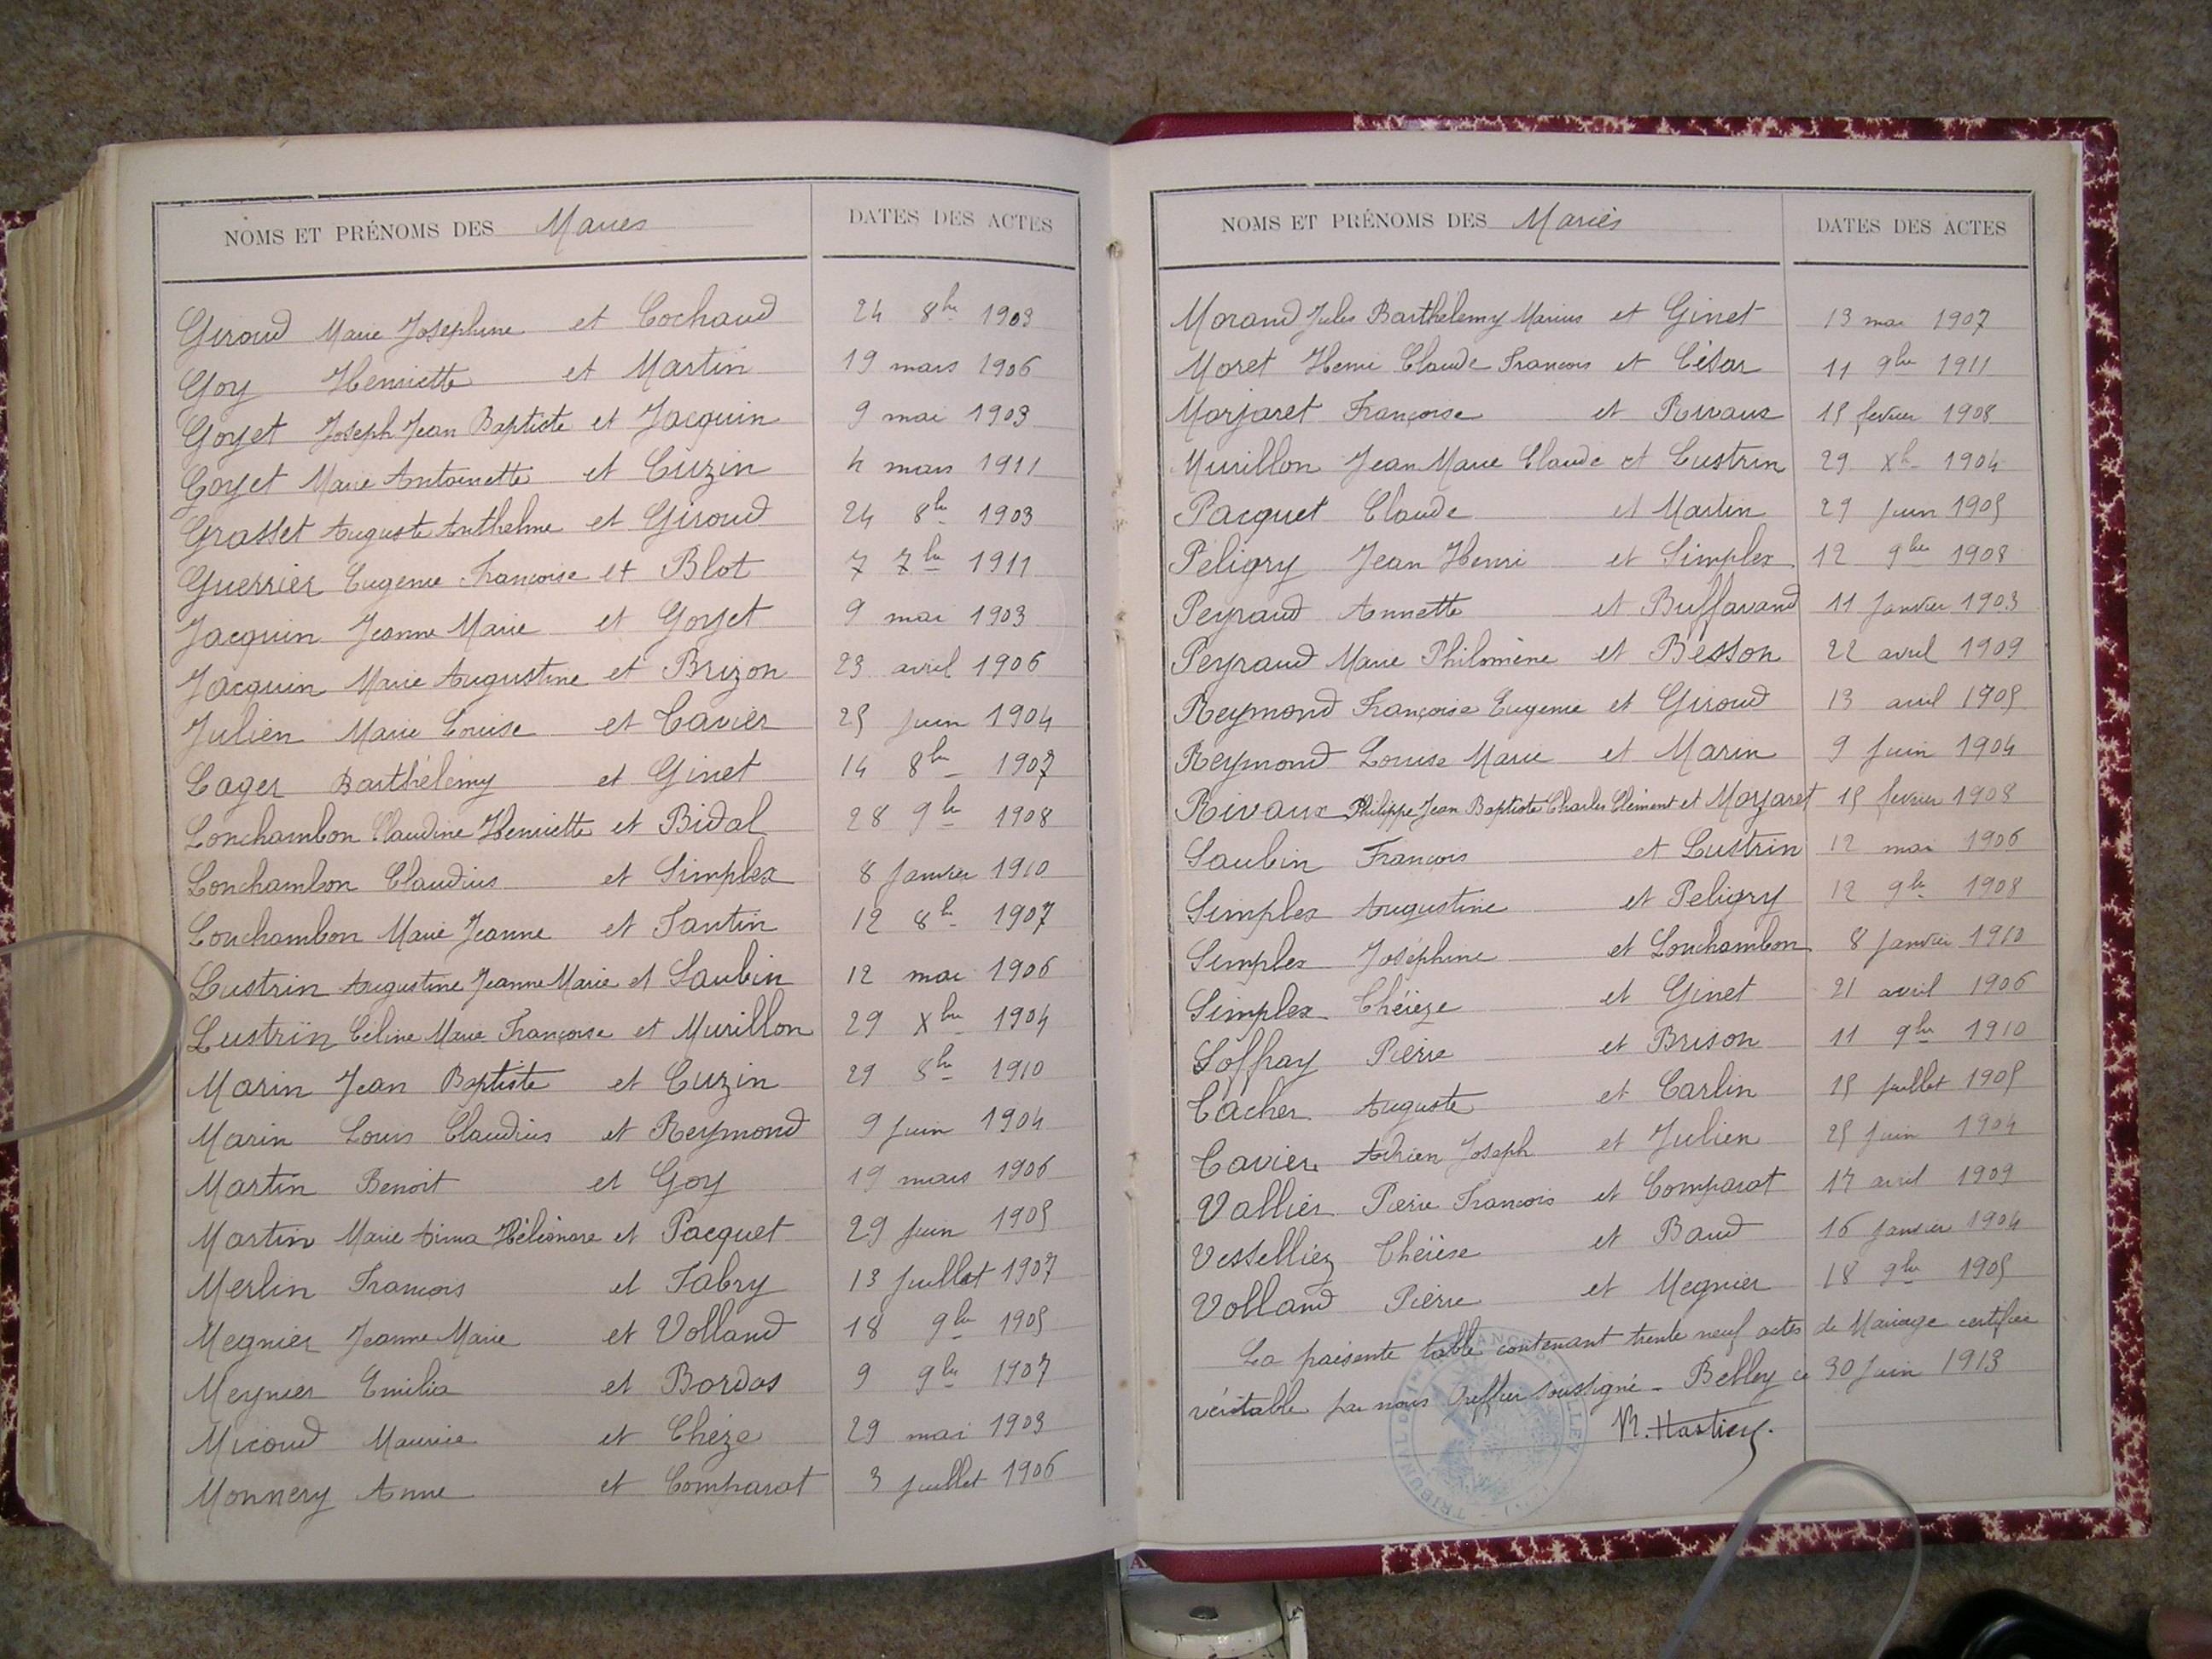 NOMS ET PRÉNOMS DES Mariés DATES DES ACTES
Giroud Marie Joséphine et Cochaud 24 8bre 1903
Goy Henriette et Martin 19 mars 1906
Goyet Joseph Jean Baptiste et Jacquin 9 mai 1903
Goyet Marie Antoinette et Cuzin 4 mars 1911
Grasset Auguste Anthelme et Giroud 24 8bre 1903
Guerrier Eugenie Françoise et Blot 7 7bre 1911
Jacquin Jeanne Marie et Goyet 9 mai 1903
Jacquin Marie Augustine et Brizon 23 avril 1906
Julien Marie Louise et Tavier 25 juin 1904
Lager Barthélémy et Ginet 14 8bre 1907
Lonchambon Claudine Henriette et Bidal 28 9bre 1908
Lonchambon Claudius et Simplex 8 janvier 1910
Lonchambon Marie Jeanne et Tantin 12 8bre 1907
Lustrin Augustine Jeanne Marie et Saubin 12 mai 1906
Lustrin Céline Marie Françoise et Murillon 29 Xbre 1904
Marin Jean Baptiste et Cuzin 29 8bre 1910
Marin Louis Claudius et Reymond 9 juin 1904
Martin Benoit et Goy 19 mars 1906
Martin Marie Aima Héléonore et Pacquet 29 juin 1905
Merlin François et Fabry 13 juillet 1907
Megnier Jeanne Marie et Volland 18 9bre 1905
Meynier Emilia et Bordas 9 9bre 1907
Micoud Maurice et Chèze 29 mai 1903
Monnery Anne et Comparat 3 juillet 1906
NOMS ET PRÉNOMS DES Mariés DATES DES ACTES
Morand Jules Barthélemy Marius et Ginet 13 mai 1907
Moret Henri Claude François et César 11 9bre 1911
Morjaret Françoise et Rivaux 15 fevrier 1908
Murillon Jean Marie Claude et Lustrin 29 Xbre 1904
Pacquet Claude et Martin 29 juin 1905
Peligry Jean Henri et Simplex 12 9bre 1908
Peyraud Annette et Buffavand 11 janvier 1903
Peyraud Marie Philomène et Besson 22 avril 1909
Reymond Françoise Eugenie et Giroud 13 avril 1905
Reymond Louise Marie et Marin 9 juin 1904
Rivaux Philippe Jean Baptiste Charles Clément et Morjaret 15 fevrier 1908
Saubin François et Lustrin 12 mai 1906
Simplex Augustine et Peligry 12 9bre 1908
Simplex Joséphine et Lonchambon 8 janvier 1910
Simplex Thérèze et Ginet 21 avril 1906
Soffray Pierre et Brison 11 9bre 1910
Tacher Auguste et Carlin 15 juillet 1905
Tavier Adrien Joseph et Julien 25 juin 1904
Vallier Pierre François et Comparat 17 avril 1909
Vesselliez Thérèse et Baud 16 janvier 1904
Volland Pierre et Megnier 18 9bre 1905
La présente table contenant trente neuf actes de Mariage certifiée
véritable par nous Greffier soussigné - Belley ce 30 juin 1913